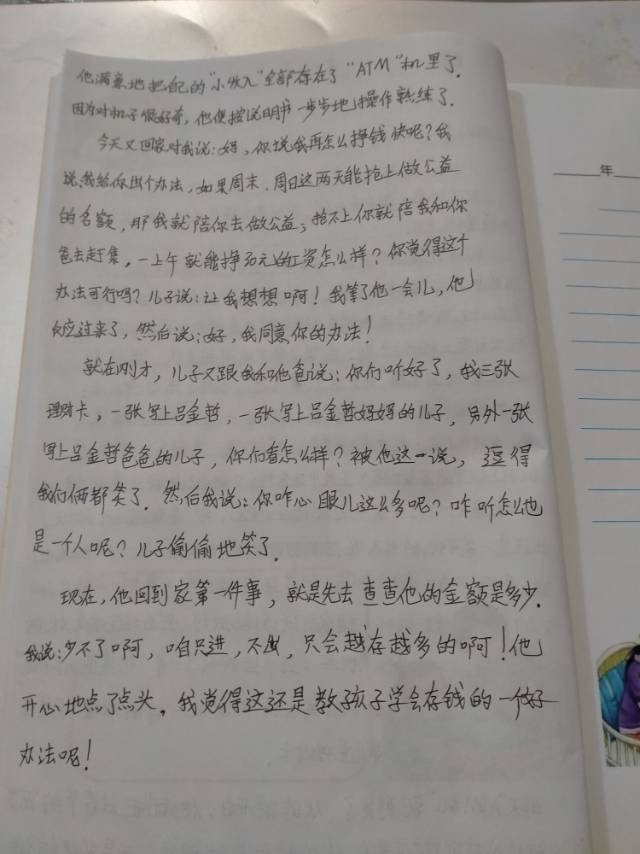 他满意地把自己的“小收入”全部存在了“ATM”机里了.
因为对机子很好奇,他便按说明书一步步地操作熟练了.
今天又回家对我说:妈,你说我再怎么挣钱快呢?我
说,我给你出个办法,如果周末、周日这两天能抢上做公益
的名额,那我就陪你去做公益;抢不上你就陪我和你
爸去赶集,一上午就能挣30元的工资怎么样?你觉得这个
办法可行吗?儿子说:让我想想啊!我等了他一会儿,他
反应过来了,然后说:好,我同意你的办法!
就在刚才,儿子又跟我和他爸说:你们听好了,我三张
理财卡,一张写上吕金哲,一张写上吕金哲妈妈的儿子,另外一张
写上吕金哲爸爸的儿子,你们看怎么样?被他这一说,逗得
我们俩都笑了.然后我说:你咋心眼儿这么多呢?咋听怎么也
是一个人呢?儿子偷偷地笑了.
现在,他回到家第一件事,就是先去查查他的金额是多少.
我说:少不了啊,咱只进,不出,只会越存越多的啊!他
开心地点了点头.我觉得这还是教孩子学会存钱的一个好
办法呢!
年